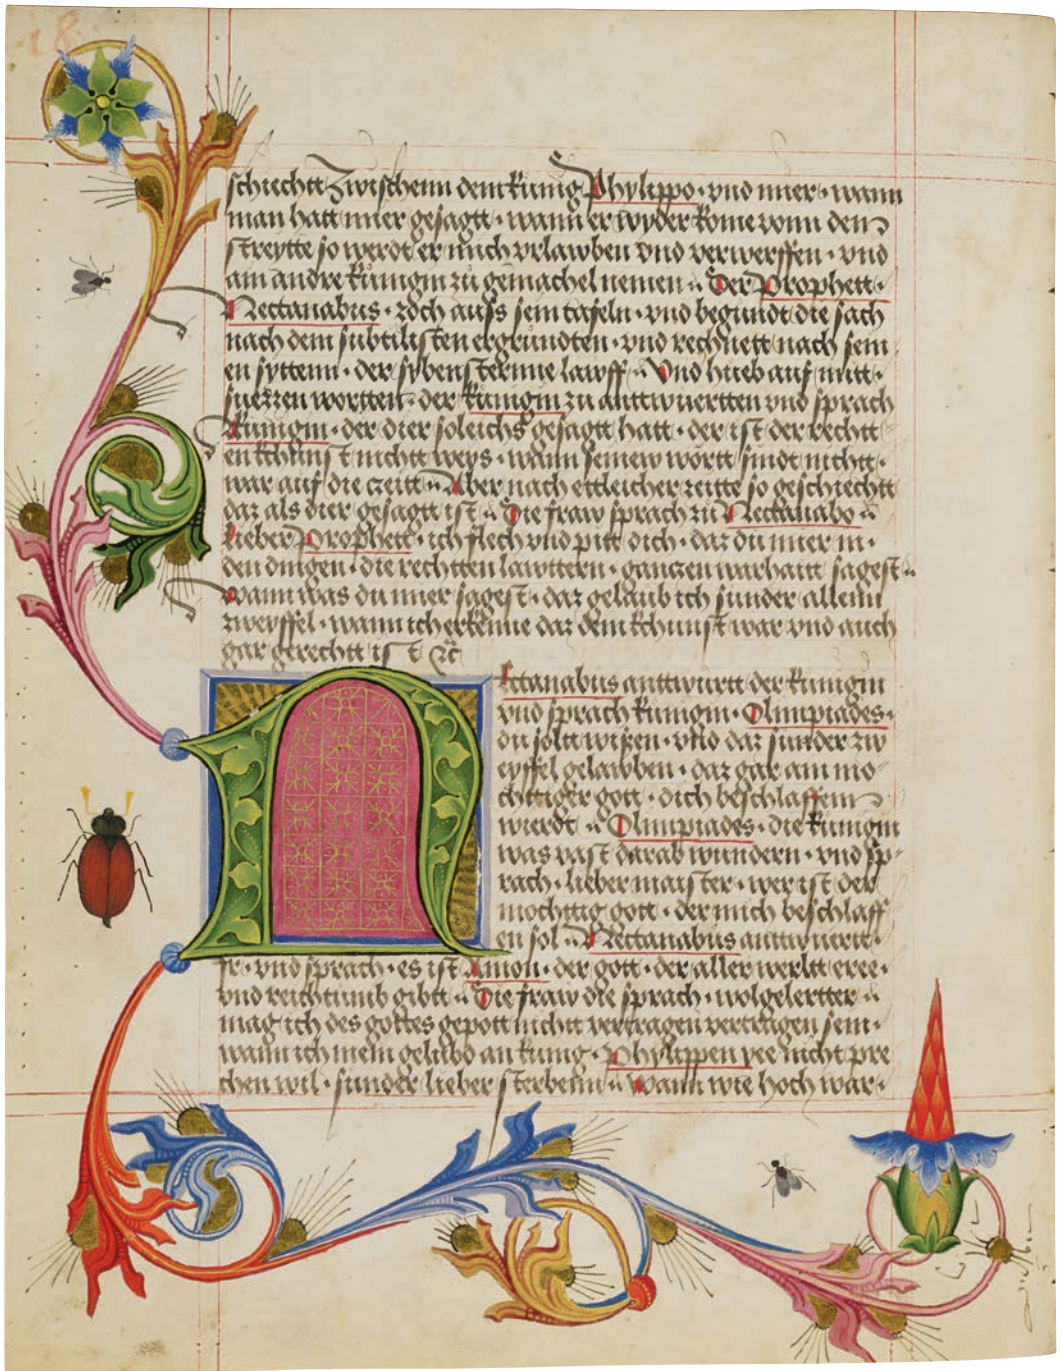 schiechtt Zwischenn dem kunig Phylippo · vnd mier · wann
man hatt mier gesagtt · wann er wyder kome vonn den
streytte so werdt er mich vrlawben vnd verwerffen · vnd
am andre kunigin zu gemachel nemen · Der Prophett ·
Nectanabus · zoch aufs sein tafeln · vnd begundt die sach
nach dem subtilisten ergrundten · vnd rechnett nach sein
en syttenn · der sybenn sternne lawff · Vnd hueb auf mitt ·
suezzen wortten · der kunigin zu anttwuertten vnd sprach
kunigin · der dier soleichs gesagtt hatt · der ist der rechtt
en kchunst nichtt weys · wann seinew wortt sindt nichtt ·
war auf die czeitt · Aber nach ettleicher zeitte so geschiechtt
daz als dier gesagtt ist · Die fraw sprach zu Nectanabo ·
lieber Prophett · ich flech vnd pitt dich · daz du mier in ·
den dingen · die rechtten lawttern · ganczen warhaitt sagest
wann was du mier sagest · daz gelaub ich sunder allenn
zweyffel · wann ich erkenne daz dein kchunst war vnd auch
gar gerechtt ist ꝛc
Nectanabus anttwurtt der kunigin
vnd sprach kunigin · Olimpiades ·
du soltt wissen · vnd daz sunder zw
eyffel gelawben · daz gar ain mo
chttiger gott · dich beschlaffenn
wierdt · Olimpiades · die kunigin
was vast darab wundern · vnd sp
rach · lieber maister · wer ist der
mochttig gott · der mich beschlaff
en sol · Nectanabus anttwuertt ·
Ir · vnd sprach · es ist Amon · der gott · der aller werltt eree ·
vnd reichtumb gibtt · Die fraw die sprach · wolgelertter
mag ich des gottes gepott nichtt vertragen vertragen sein ·
wann ich mein gelubd an kunig · Phylippen yee nicht pre
chen wil · sunder lieber sterbenn · Wann wie hoch war ·